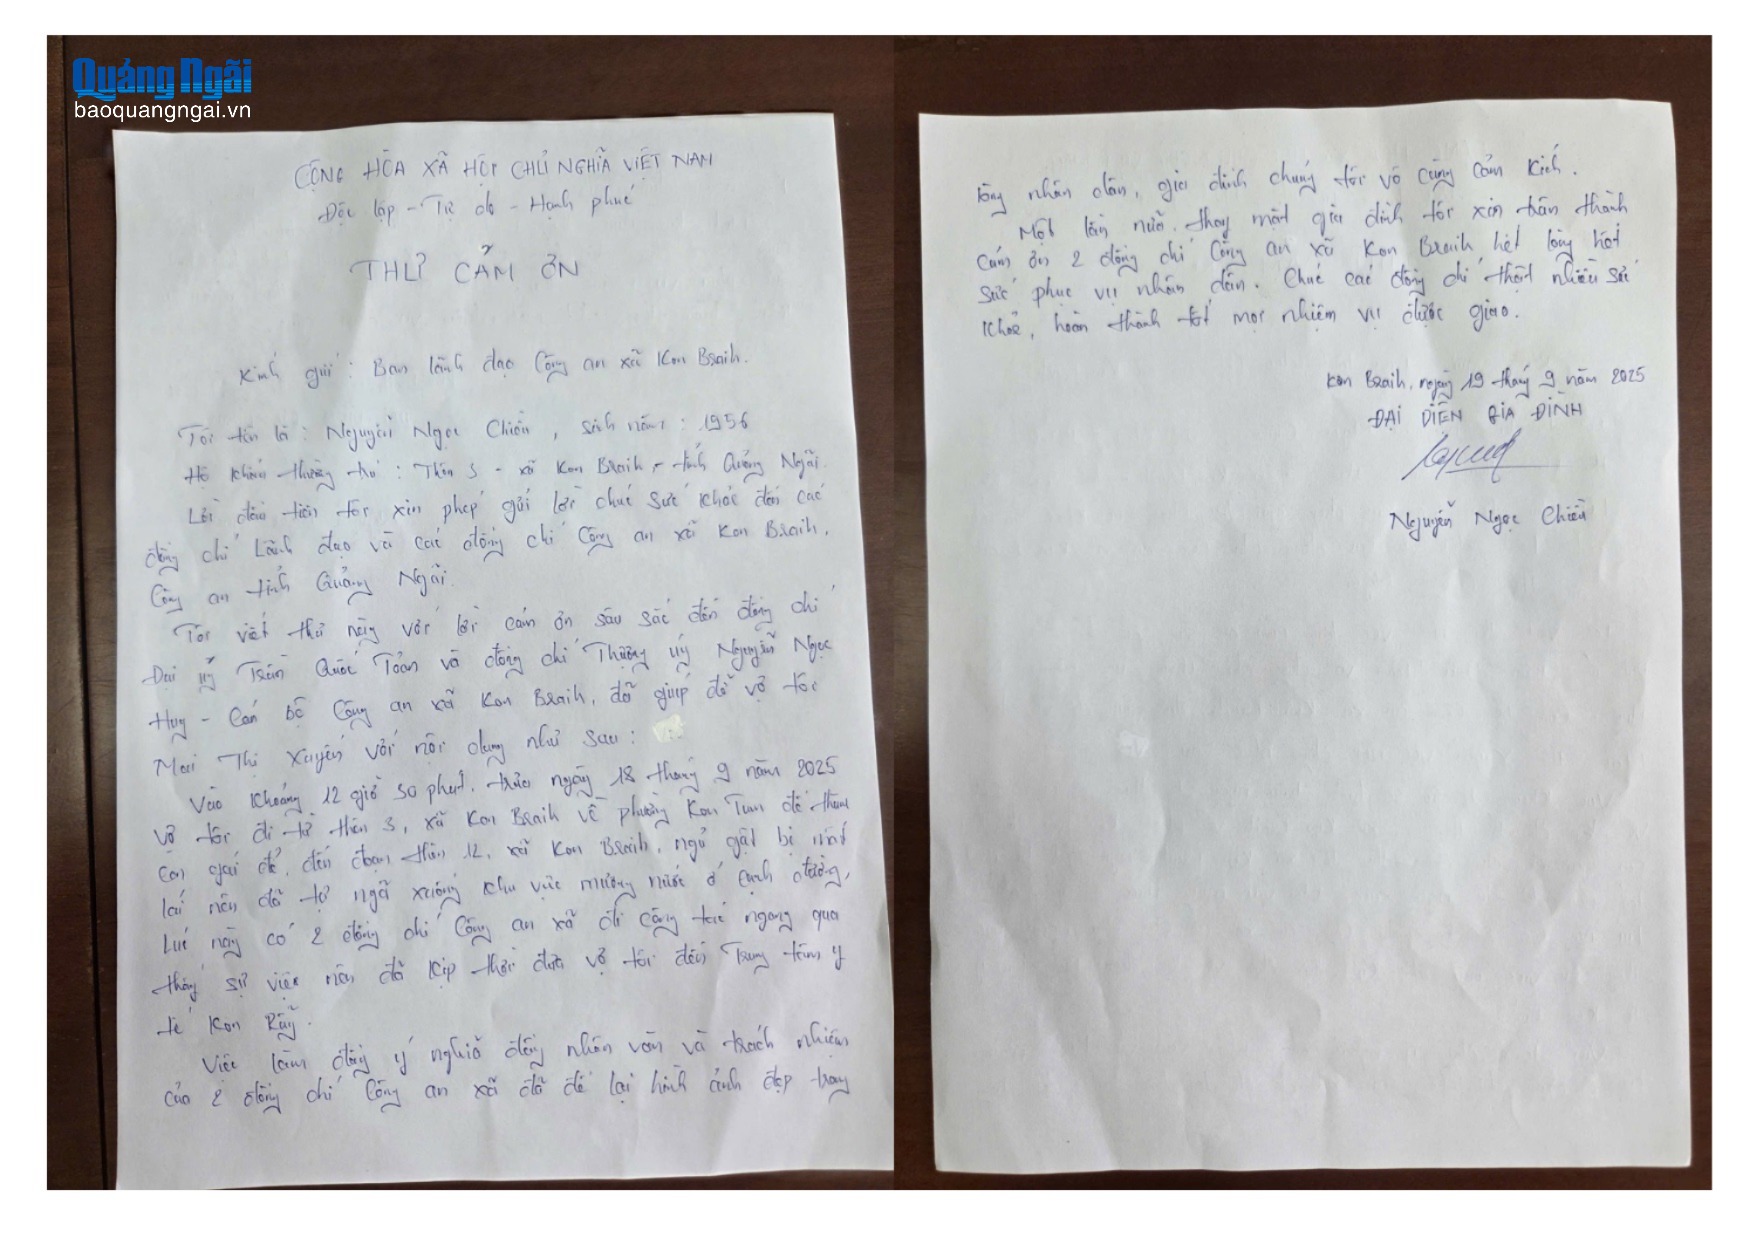 Quảng Ngãi
baoquangngai.vn
CỘNG HÒA XÃ HỘI CHỦ NGHĨA VIỆT NAM
Độc lập - Tự do - Hạnh phúc
THƯ CẢM ƠN
Kính gửi: Ban lãnh đạo Công an xã Kon Braih.
Tôi tên là: Nguyễn Ngọc Chiến, sinh năm: 1956
Hộ khẩu thường trú: Thôn 3 - xã Kon Braih - tỉnh Quảng Ngãi.
Lời đầu tiên tôi xin phép gửi lời chúc sức khỏe đến các
đồng chí Lãnh đạo và các đồng chí Công an xã Kon Braih,
Công an tỉnh Quảng Ngãi.
Tôi viết thư này với lời cám ơn sâu sắc đến đồng chí
Đại úy Trần Quốc Toản và đồng chí Thượng úy Nguyễn Ngọc
Huy - Cán bộ Công an xã Kon Braih, đã giúp đỡ vợ tôi
Mai Thị Xuyến với nội dung như sau:
Vào khoảng 12 giờ 30 phút, trưa ngày 18 tháng 9 năm 2025
vợ tôi đi từ thôn 3, xã Kon Braih về phường Kon Tum để thăm
con gái đẻ, đến đoạn thôn 12, xã Kon Braih, ngủ gật bị
lái nên đã tự ngã xuống khu vực mương nước ở cạnh đường,
Lúc này có 2 đồng chí Công an xã đi công tác ngang qua
thấy sự việc nên đã kịp thời đưa vợ tôi đến Trung tâm y
tế Kon Rẫy.
Việc làm đầy ý nghĩa đồng nhân văn và trách nhiệm
của 2 đồng chí Công an xã đã để lại hình ảnh đẹp trong
lòng nhân dân, gia đình chúng tôi vô cùng cảm kích.
Một lần nữa, thay mặt gia đình tôi xin chân thành
cám ơn 2 đồng chí Công an xã Kon Braih hết lòng hết
sức phục vụ nhân dân. Chúc các đồng chí thật nhiều sức
khỏe, hoàn thành tốt mọi nhiệm vụ được giao.
Kon Braih, ngày 19 tháng 9 năm 2025
ĐẠI DIỆN GIA ĐÌNH
Nguyễn Ngọc Chiến